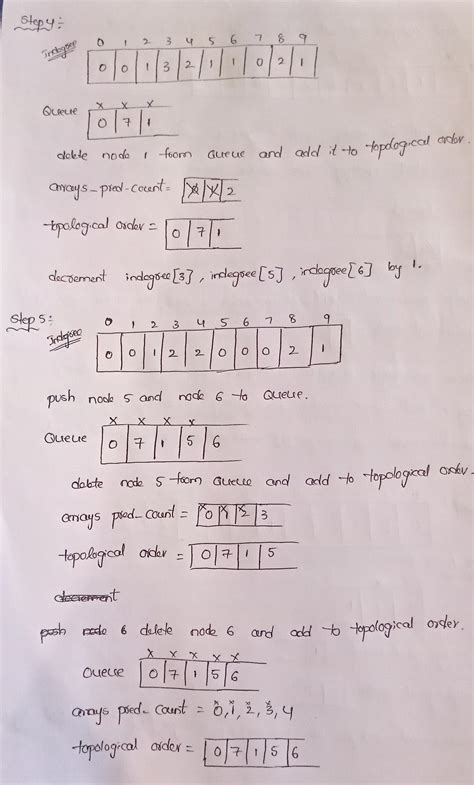 Step 4:-
0 1 2 3 4 5 6 7 8 9
Indegree 0 0 1 3 2 1 1 0 2 1
x x x
Queue 0 7 1
delete node 1 from Queue and add it to topological order.
arrays_pred-count = 0 1 2
topological order = 0 7 1
decrement indegree[3], indegree[5], indegree[6] by 1.
Step 5:
0 1 2 3 4 5 6 7 8 9
Indegree 0 0 1 2 2 0 0 0 2 1
push node 5 and node 6 to Queue.
x x x x
Queue 0 7 1 5 6
delete node 5 from Queue and add to topological order.
arrays pred_count = 0 1 2 3
topological order = 0 7 1 5
decrement
push node 6 delete node 6 and add to topological order.
x x x x x
Queue 0 7 1 5 6
arrays pred_count = 0, 1, 2, 3, 4
topological order = 0 7 1 5 6